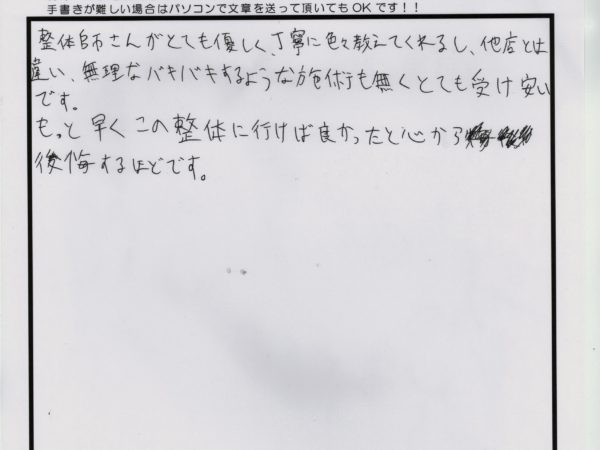 手書きが難しい場合はパソコンで文章を送って頂いてもOKです！！
整体師さんがとても優しく、丁寧に色々教えてくれるし、他店とは
違い、無理なバキバキするような施術も無くとても受け安い
です。
もっと早くこの整体に行けば良かったと心から
後悔するほどです。